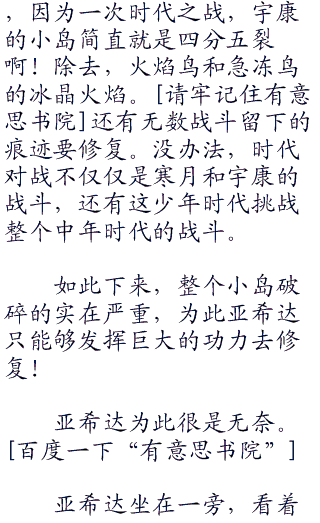 ，因为一次时代之战，宇康
的小岛简直就是四分五裂
啊！除去，火焰鸟和急冻鸟
的冰晶火焰。[请牢记住有意
思书院]还有无数战斗留下的
痕迹要修复。没办法，时代
对战不仅仅是寒月和宇康的
战斗，还有这少年时代挑战
整个中年时代的战斗。
如此下来，整个小岛破
碎的实在严重，为此亚希达
只能够发挥巨大的功力去修
复！
亚希达为此很是无奈。
[百度一下“有意思书院”]
亚希达坐在一旁，看着